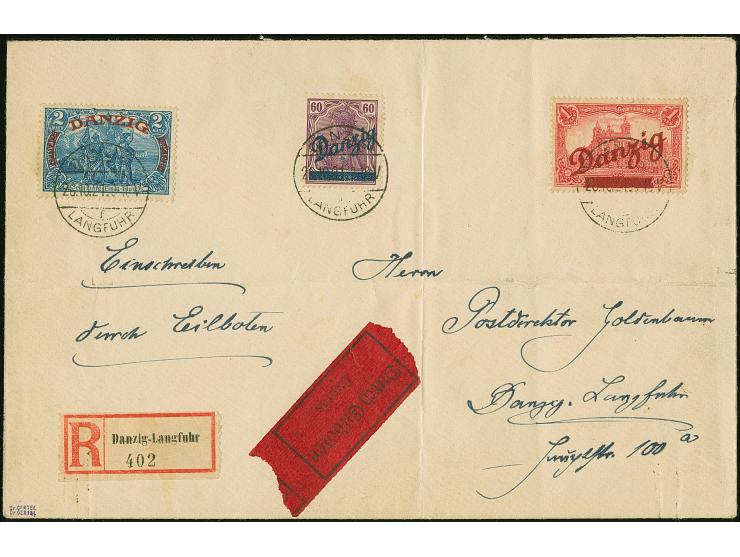 2 DANZIG 2
60 60
Danzig
Danzig
LANGFUHR
LANGFUHR
Einschreiben
durch Eilboten
Herrn
Postdirektor Goldenbaum
Danzig-Langfuhr
100 a
Durch Eilboten
Exprès
R Danzig-Langfuhr
402